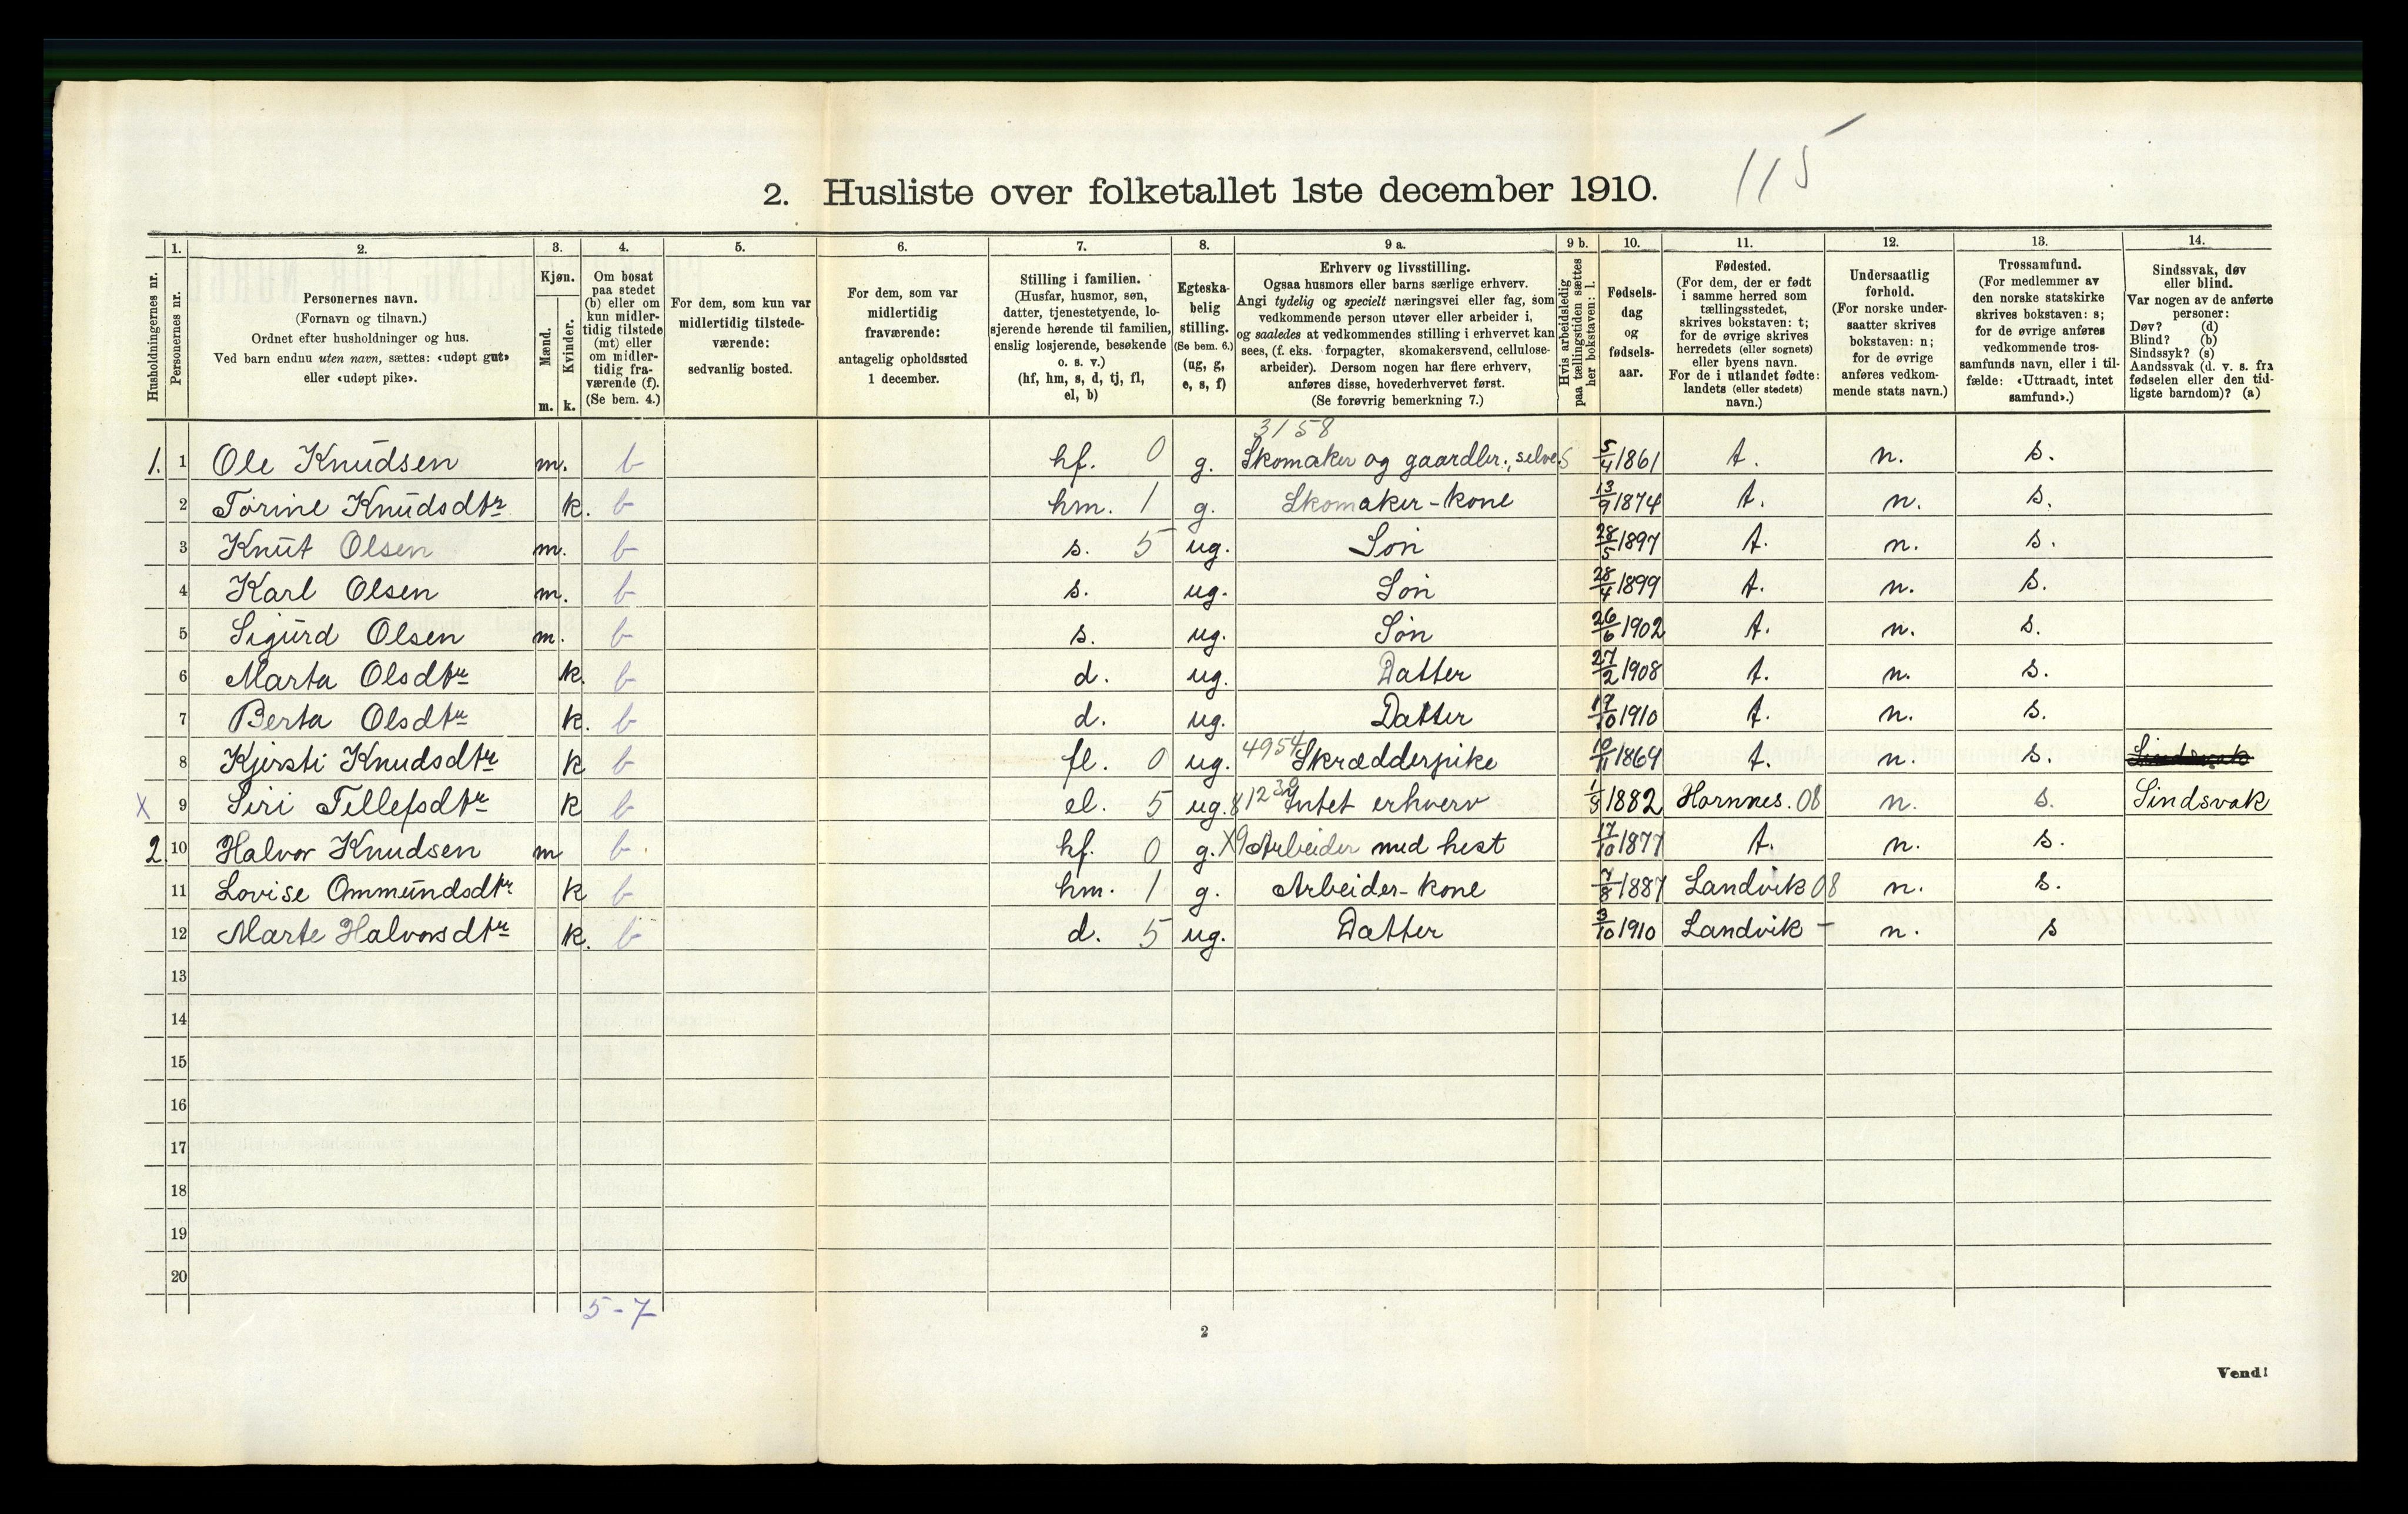 115
2. Husliste over folketallet 1ste december 1910.
Husholdningernes nr.
1. Personernes nr.
2. Personernes navn.
(Fornavn og tilnavn.)
Ordnet efter husholdninger og hus.
Ved barn endnu uten navn, sættes: «udøpt gut»
eller «udøpt pike».
3. Kjøn.
Mænd. m.
Kvinder. k.
4. Om bosat
paa stedet
(b) eller om
kun midler-
tidig tilstede
(mt) eller
om midler-
tidig fra-
værende (f).
(Se bem. 4.)
5. For dem, som kun var
midlertidig tilstede-
værende:
sedvanlig bosted.
6. For dem, som var
midlertidig
fraværende:
antagelig opholdssted
1 december.
7. Stilling i familien.
(Husfar, husmor, søn,
datter, tjenestetyende, lo-
sjerende hørende til familien,
enslig losjerende, besøkende
o. s. v.)
(hf, hm, s, d, tj, fl,
el, b)
8. Egteska-
belig
stilling.
(Se bem. 6.)
(ug, g,
e, s, f)
9 a. Erhverv og livsstilling.
Ogsaa husmors eller barns særlige erhverv.
Angi tydelig og specielt næringsvei eller fag, som
vedkommende person utøver eller arbeider i,
og saaledes at vedkommendes stilling i erhvervet kan
sees, (f. eks. forpagter, skomakersvend, cellulose-
arbeider). Dersom nogen har flere erhverv,
anføres disse, hovederhvervet først.
(Se forøvrig bemerkning 7.)
9 b. Hvis arbeidsledig
paa tællingstiden sættes
her bokstaven: l.
10. Fødsels-
dag
og
fødsels-
aar.
11. Fødested.
(For dem, der er født
i samme herred som
tællingsstedet,
skrives bokstaven: t;
for de øvrige skrives
herredets (eller sognets)
eller byens navn.
For de i utlandet fødte:
landets (eller stedets)
navn.)
12. Undersaatlig
forhold.
(For norske under-
saatter skrives
bokstaven: n;
for de øvrige
anføres vedkom-
mende stats navn.)
13. Trossamfund.
(For medlemmer av
den norske statskirke
skrives bokstaven: s;
for de øvrige anføres
vedkommende tros-
samfunds navn, eller i til-
fælde: «Uttraadt, intet
samfund».)
14. Sindssvak, døv
eller blind.
Var nogen av de anførte
personer:
Døv? (d)
Blind? (b)
Sindssyk? (s)
Aandssvak (d. v. s. fra
fødselen eller den tid-
ligste barndom)? (a)
3158
1. 1 Ole Knudsen m. b hf. 0 g. Skomaker og gaardbr., selve. S 5/4 1861 t. n. s.
2 Torine Knudsdtr k. b hm. 1 g. Skomaker-kone 13/9 1874 t. n. s.
3 Knut Olsen m. b s. 5 ug. Søn 28/5 1897 t. n. s.
4 Karl Olsen m. b s. ug. Søn 28/4 1899 t. n. s.
5 Sigurd Olsen m. b s. ug. Søn 26/6 1902 t. n. s.
6 Marta Olsdtr k. b d. ug. Datter 27/2 1908 t. n. s.
7 Berta Olsdtr k. b d. ug. Datter 17/10 1910 t. n. s.
8 Kjersti Knudsdtr k b fl. 0 ug. 4954 Skrædderpike 10/11 1869 t. n. s. Sindsvak
X 9 Siri Tellefsdtr k b el. 5 ug. Intet erhverv 1882 Hornnes. 08 n. s. Sindsvak
2. 10 Halvor Knudsen m b hf. 0 g. X9 Arbeider med hest 17/10 1877 t. n. s.
11 Lovise Ommundsdtr k b hm. 1 g. Arbeider-kone 7/8 1887 Landvik 08 n. s.
12 Marte Halvorsdtr k. b d. 5 ug. Datter 3/10 1910 Landvik - n. s
13
14
15
16
17
18
19
20
5-7
2
Vend!